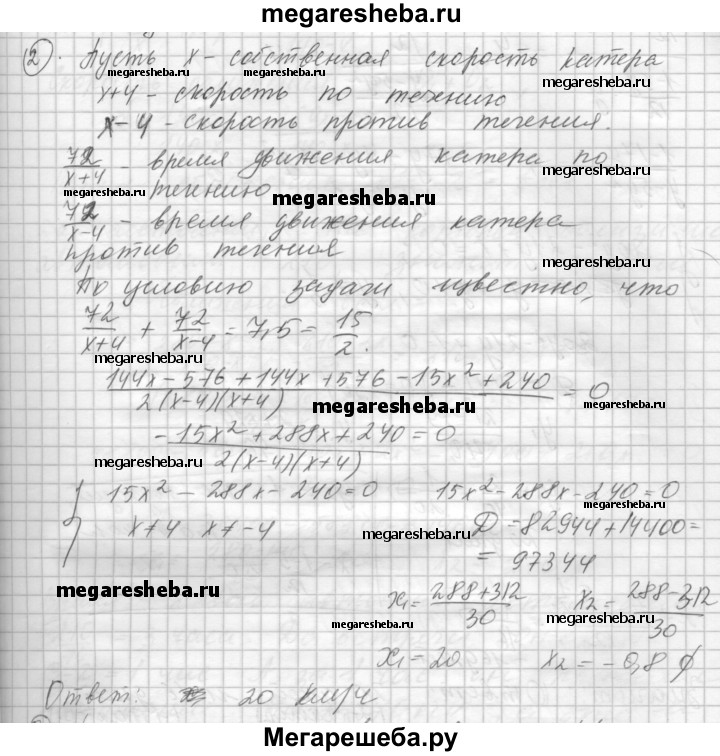 megaresheba.ru
2). Пусть x - собственная скорость катера
megaresheba.ru megaresheba.ru megaresheba.ru
x+4 - скорость по течению
x-4 - скорость против течения.
megaresheba.ru megaresheba.ru
72/(x+4) - время движения катера по
megaresheba.ru
течению
megaresheba.ru
72/(x-4) - время движения катера
против течения
megaresheba.ru
По условию задачи известно, что
72/(x+4) + 72/(x-4) = 7,5 = 15/2.
megaresheba.ru megaresheba.ru
(144x - 576 + 144x + 576 - 15x² + 240)/(2(x-4)(x+4)) = 0
megaresheba.ru megaresheba.ru
(-15x² + 288x + 240)/(2(x-4)(x+4)) = 0
megaresheba.ru megaresheba.ru
{ 15x² - 288x - 240 = 0 15x² - 288x - 240 = 0
x≠4 x≠-4 D = 82944 + 14400 =
megaresheba.ru
= 97344
megaresheba.ru megaresheba.ru
x₁ = (288+312)/30 x₂ = (288-312)/30
megaresheba.ru megaresheba.ru
x₁ = 20 x₂ = -0,8 ∅
Ответ: 20 км/ч
Мегарешеба.ру